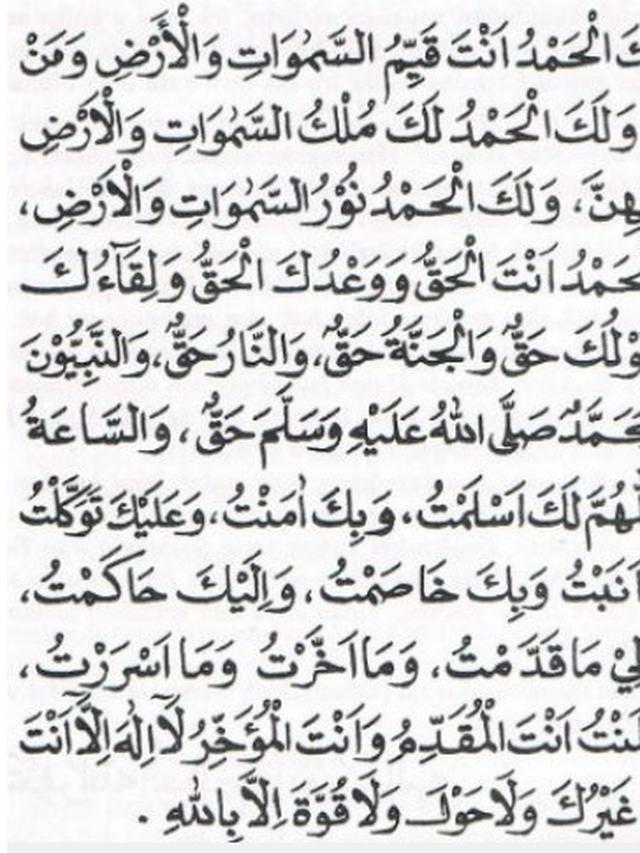 الْحَمْدُ اَنْتَ قَيِّمُ السَّمٰوَاتِ وَالْأَرْضِ وَمَنْ
وَلَكَ الْحَمْدُ لَكَ مُلْكُ السَّمٰوَاتِ وَالْأَرْضِ
وَلَكَ الْحَمْدُ نُوْرُ السَّمٰوَاتِ وَالْأَرْضِ،
اَنْتَ الْحَقُّ وَوَعْدُكَ الْحَقُّ وَلِقَآءُكَ
حَقٌّ وَالْجَنَّةُ حَقٌّ، وَالنَّارُ حَقٌّ، وَالنَّبِيُّوْنَ
صَلَّى اللهُ عَلَيْهِ وَسَلَّمَ حَقٌّ، وَالسَّاعَةُ
لَكَ اَسْلَمْتُ، وَبِكَ اٰمَنْتُ، وَعَلَيْكَ تَوَكَّلْتُ
اَنَبْتُ وَبِكَ خَاصَمْتُ، وَاِلَيْكَ حَاكَمْتُ،
مَا قَدَّمْتُ، وَمَا اَخَّرْتُ وَمَا اَسْرَرْتُ،
اَنْتَ الْمُقَدِّمُ وَاَنْتَ الْمُؤَخِّرُ لَآاِلٰهَ اِلَّا اَنْتَ
غَيْرُكَ وَلَا حَوْلَ وَلَا قُوَّةَ اِلَّا بِاللهِ .